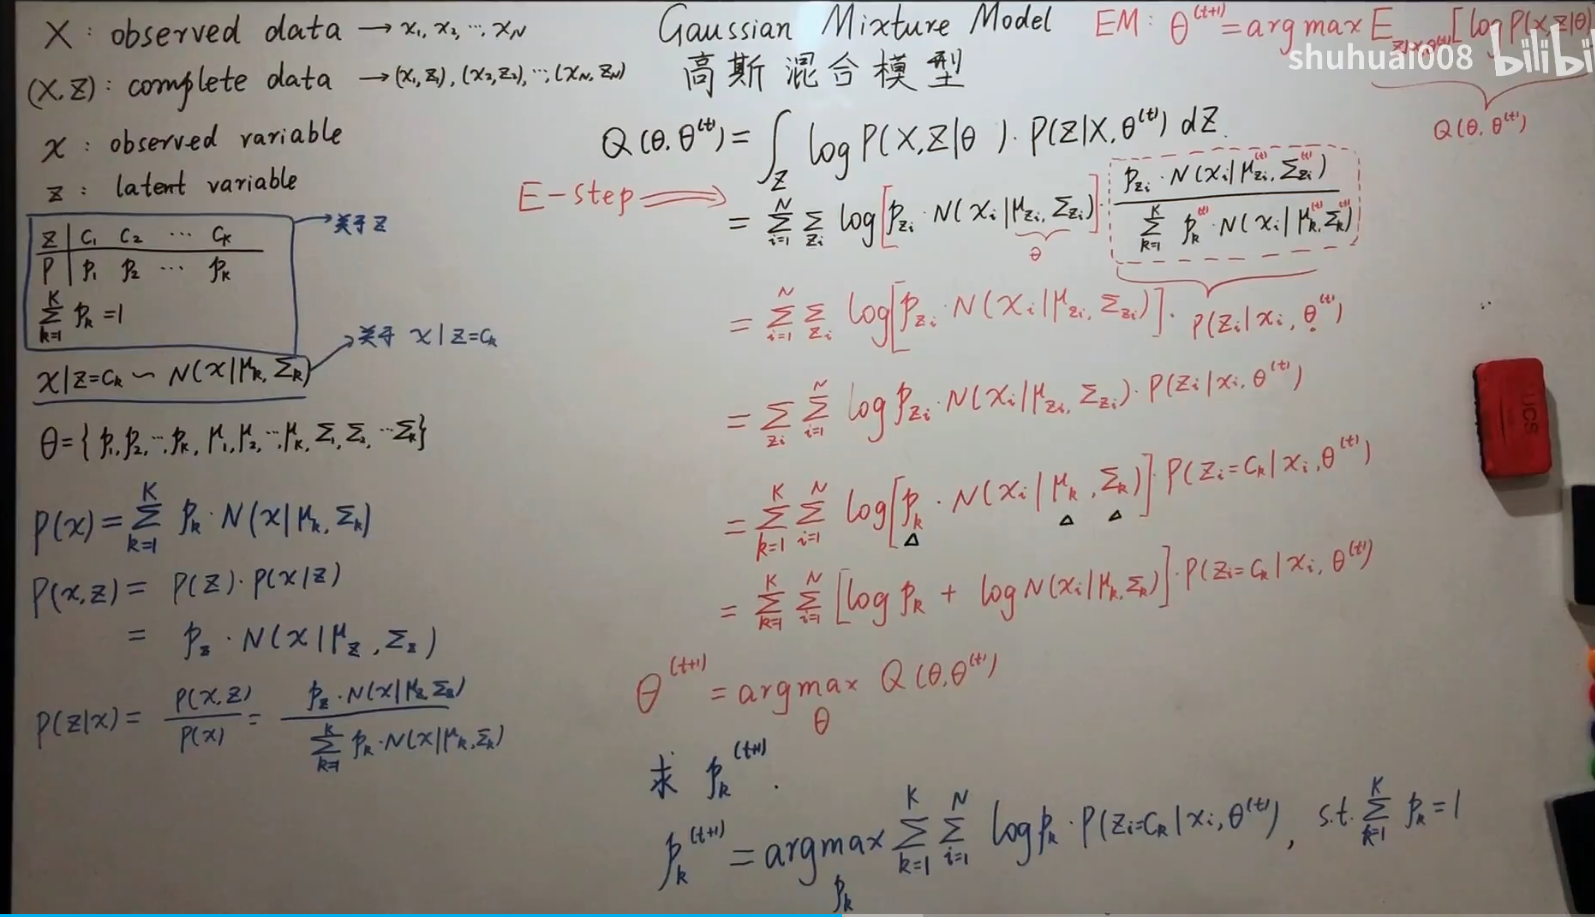 X : observed data → x₁, x₂, ..., x_N
(X, Z) : complete data → (x₁, z₁), (x₂, z₂), ..., (x_N, z_N)
x : observed variable
z : latent variable
z | C₁ C₂ ... C_K
P | p₁ p₂ ... p_K
∑_{k=1}^{K} p_k = 1
→ 关于 z
x|z=C_k ∼ N(x|μ_k, Σ_k)
→ 关于 x|z=C_k
θ = { p₁, p₂, ..., p_K, μ₁, μ₂, ..., μ_K, Σ₁, Σ₂, ... Σ_K }
P(x) = ∑_{k=1}^{K} p_k · N(x|μ_k, Σ_k)
P(x,z) = P(z) · P(x|z)
= p_z · N(x|μ_z, Σ_z)
P(z|x) = P(x,z) / P(x) = p_z · N(x|μ_z, Σ_z) / ∑_{k=1}^{K} p_k · N(x|μ_k, Σ_k)
Gaussian Mixture Model
高斯混合模型
EM : θ^{(t+1)} = arg max E_{z|x,θ^{(t)}} [log P(x,z|θ)
Q(θ, θ^{(t)})
shuhuai008 bilibili
Q(θ, θ^{(t)}) = ∫_Z log P(X,Z|θ) · P(Z|X, θ^{(t)}) dZ.
E-step ⟹
= ∑_{i=1}^{N} ∑_{z_i} log [p_{z_i} · N(x_i|μ_{z_i}, Σ_{z_i})] · p_{z_i} · N(x_i|μ_{z_i}^{(t)}, Σ_{z_i}^{(t)}) / ∑_{k=1}^{K} p_k^{(t)} · N(x_i|μ_k^{(t)}, Σ_k^{(t)})
θ
= ∑_{i=1}^{N} ∑_{z_i} log [p_{z_i} · N(x_i|μ_{z_i}, Σ_{z_i})] · P(z_i|x_i, θ^{(t)})
= ∑_{z_i} ∑_{i=1}^{N} log p_{z_i} · N(x_i|μ_{z_i}, Σ_{z_i}) · P(z_i|x_i, θ^{(t)})
= ∑_{k=1}^{K} ∑_{i=1}^{N} log [p_k · N(x_i|μ_k, Σ_k)] · P(z_i=C_k|x_i, θ^{(t)})
△ △ △
= ∑_{k=1}^{K} ∑_{i=1}^{N} [log p_k + log N(x_i|μ_k, Σ_k)] · P(z_i=C_k|x_i, θ^{(t)})
θ^{(t+1)} = arg max_θ Q(θ, θ^{(t)})
求 p_k^{(t+1)}.
p_k^{(t+1)} = arg max_{p_k} ∑_{k=1}^{K} ∑_{i=1}^{N} log p_k · P(z_i=C_k|x_i, θ^{(t)}), s.t. ∑_{k=1}^{K} p_k = 1
UCS